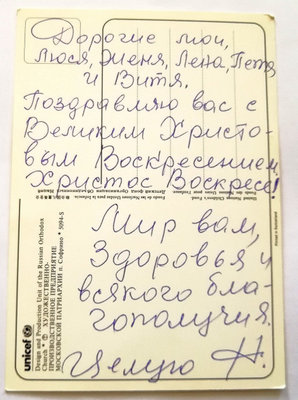 Дорогие мои,
Люся, Женя, Лена, Петя
и Витя.
Поздравляю вас с
Великим Христо-
вым Воскресением
Христос Воскресе!
Мир вам,
Здоровья и
всякого бла-
гополучия.
Целую Н.
unicef
Design and Production Unit of the Russian Orthodox
Church • ХУДОЖЕСТВЕННО-
ПРОИЗВОДСТВЕННОЕ ПРЕДПРИЯТИЕ
МОСКОВСКОЙ ПАТРИАРХИИ п. Софрино • 5094-S